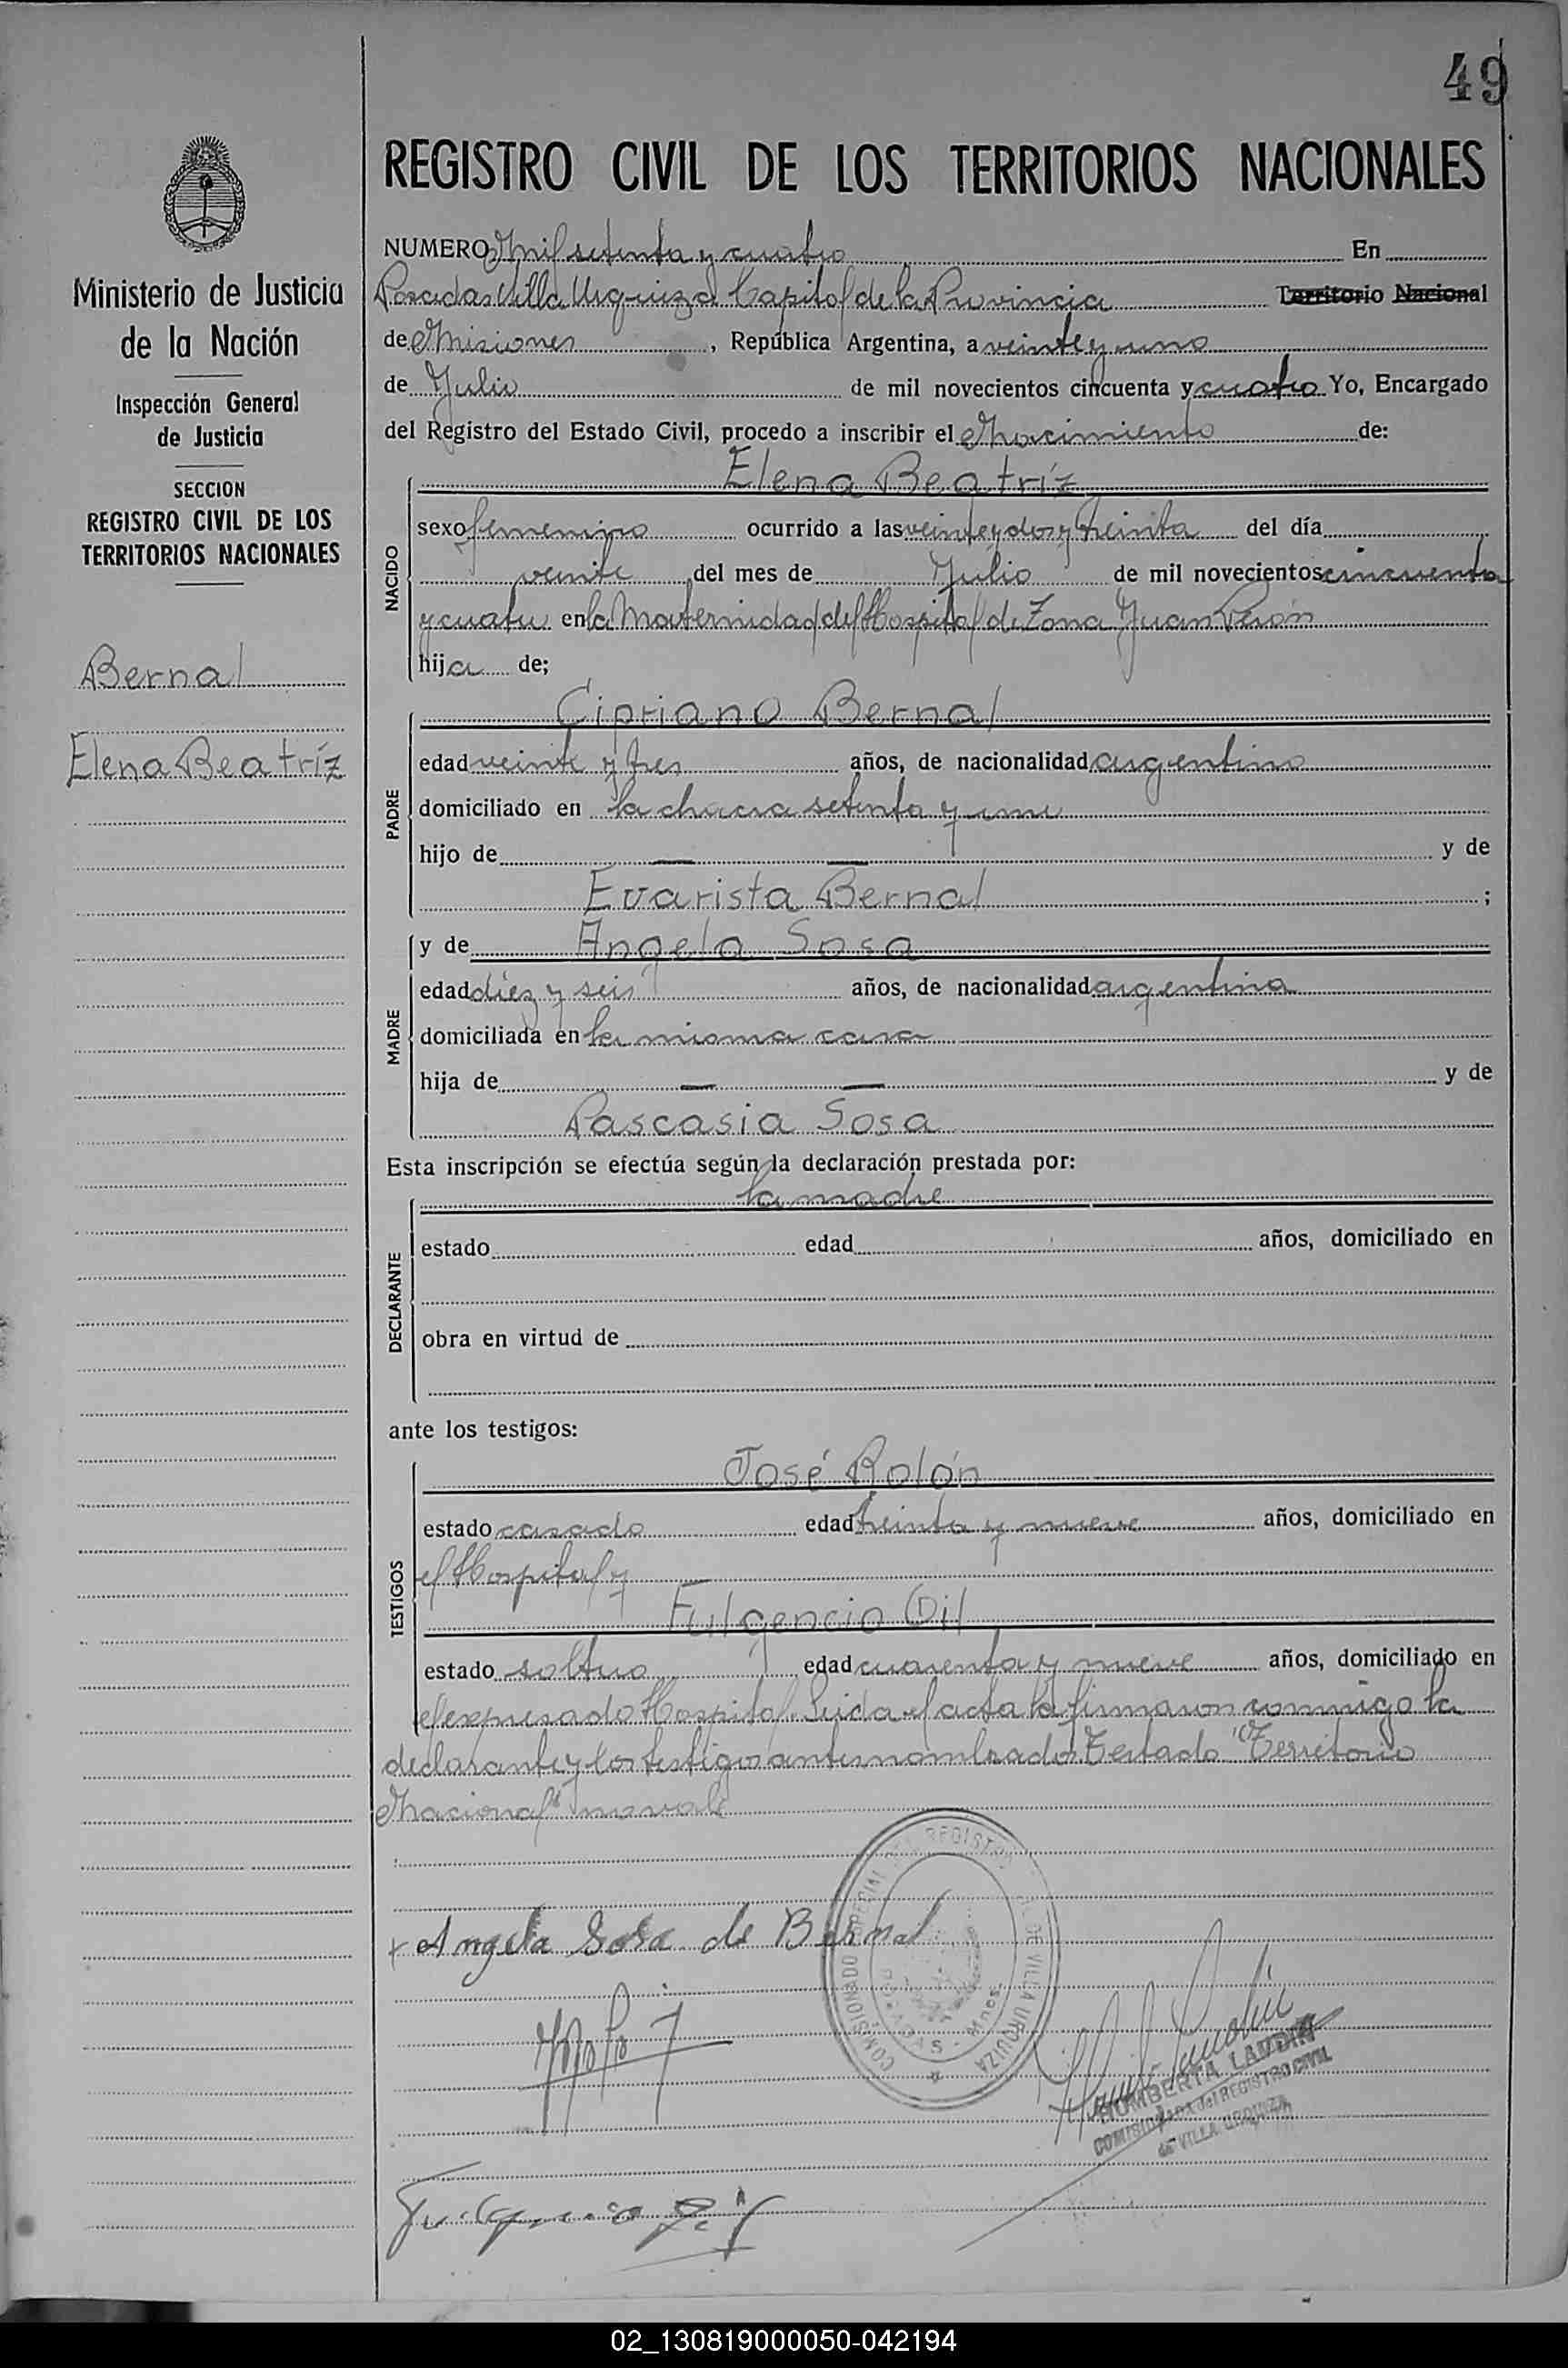 49
REGISTRO CIVIL DE LOS TERRITORIOS NACIONALES
Ministerio de Justicia
de la Nación
Inspección General
de Justicia
SECCION
REGISTRO CIVIL DE LOS
TERRITORIOS NACIONALES
Bernal
Elena Beatríz
NUMERO Mil setenta y cuatro En
Posadas Villa Urquiza Capital de la Provincia Territorio Nacional
de Misiones, República Argentina, a veinte y uno
de Julio de mil novecientos cincuenta y cuatro Yo, Encargado
del Registro del Estado Civil, procedo a inscribir el Nacimiento de:
NACIDO
Elena Beatríz
sexo femenino ocurrido a las veinte y dos y treinta del día
veinte del mes de Julio de mil novecientos cincuenta
y cuatro en la Maternidad del Hospital de Zona Juan Perón
hija de;
PADRE
Cipriano Bernal
edad veinte y tres años, de nacionalidad argentino
domiciliado en la chacra setenta y uno
hijo de — — y de
Evarista Bernal ;
MADRE
y de Angela Sosa
edad diez y seis años, de nacionalidad argentina
domiciliada en la misma casa
hija de — — y de
Pascasia Sosa
Esta inscripción se efectúa según la declaración prestada por:
DECLARANTE
la madre
estado edad años, domiciliado en
obra en virtud de
ante los testigos:
TESTIGOS
José Rolón
estado casado edad treinta y nueve años, domiciliado en
el Hospital y
Fulgencio Gil
estado soltero edad cuarenta y nueve años, domiciliado en
el expresado Hospital. Leida el acta la firmaron conmigo la
declarante y los testigos antes nombrados. Testado "Territorio
Nacional" no vale
Angela Sosa de Bernal
COMISIONADO ESPECIAL DEL REGISTRO CIVIL DE VILLA URQUIZA
POSADAS - Mnes.
HUMBERTA LANDIN
COMISIONADA del REGISTRO CIVIL
de VILLA URQUIZA
Fulgencio Gil
02_130819000050-042194